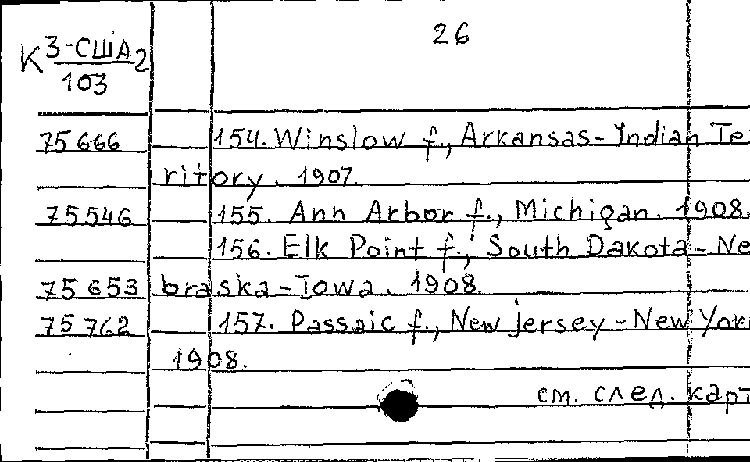 26
К 3-США2
103
75666 154. Winslow f., Arkansas-Indian Te
ritory. 1907.
75546 155. Ann Arbor f., Michigan. 1908.
156. Elk Point f., South Dakota-Ne
75653 braska-Iowa. 1908.
75762 157. Passaic f., New Jersey-New York
1908.
см. след. карт